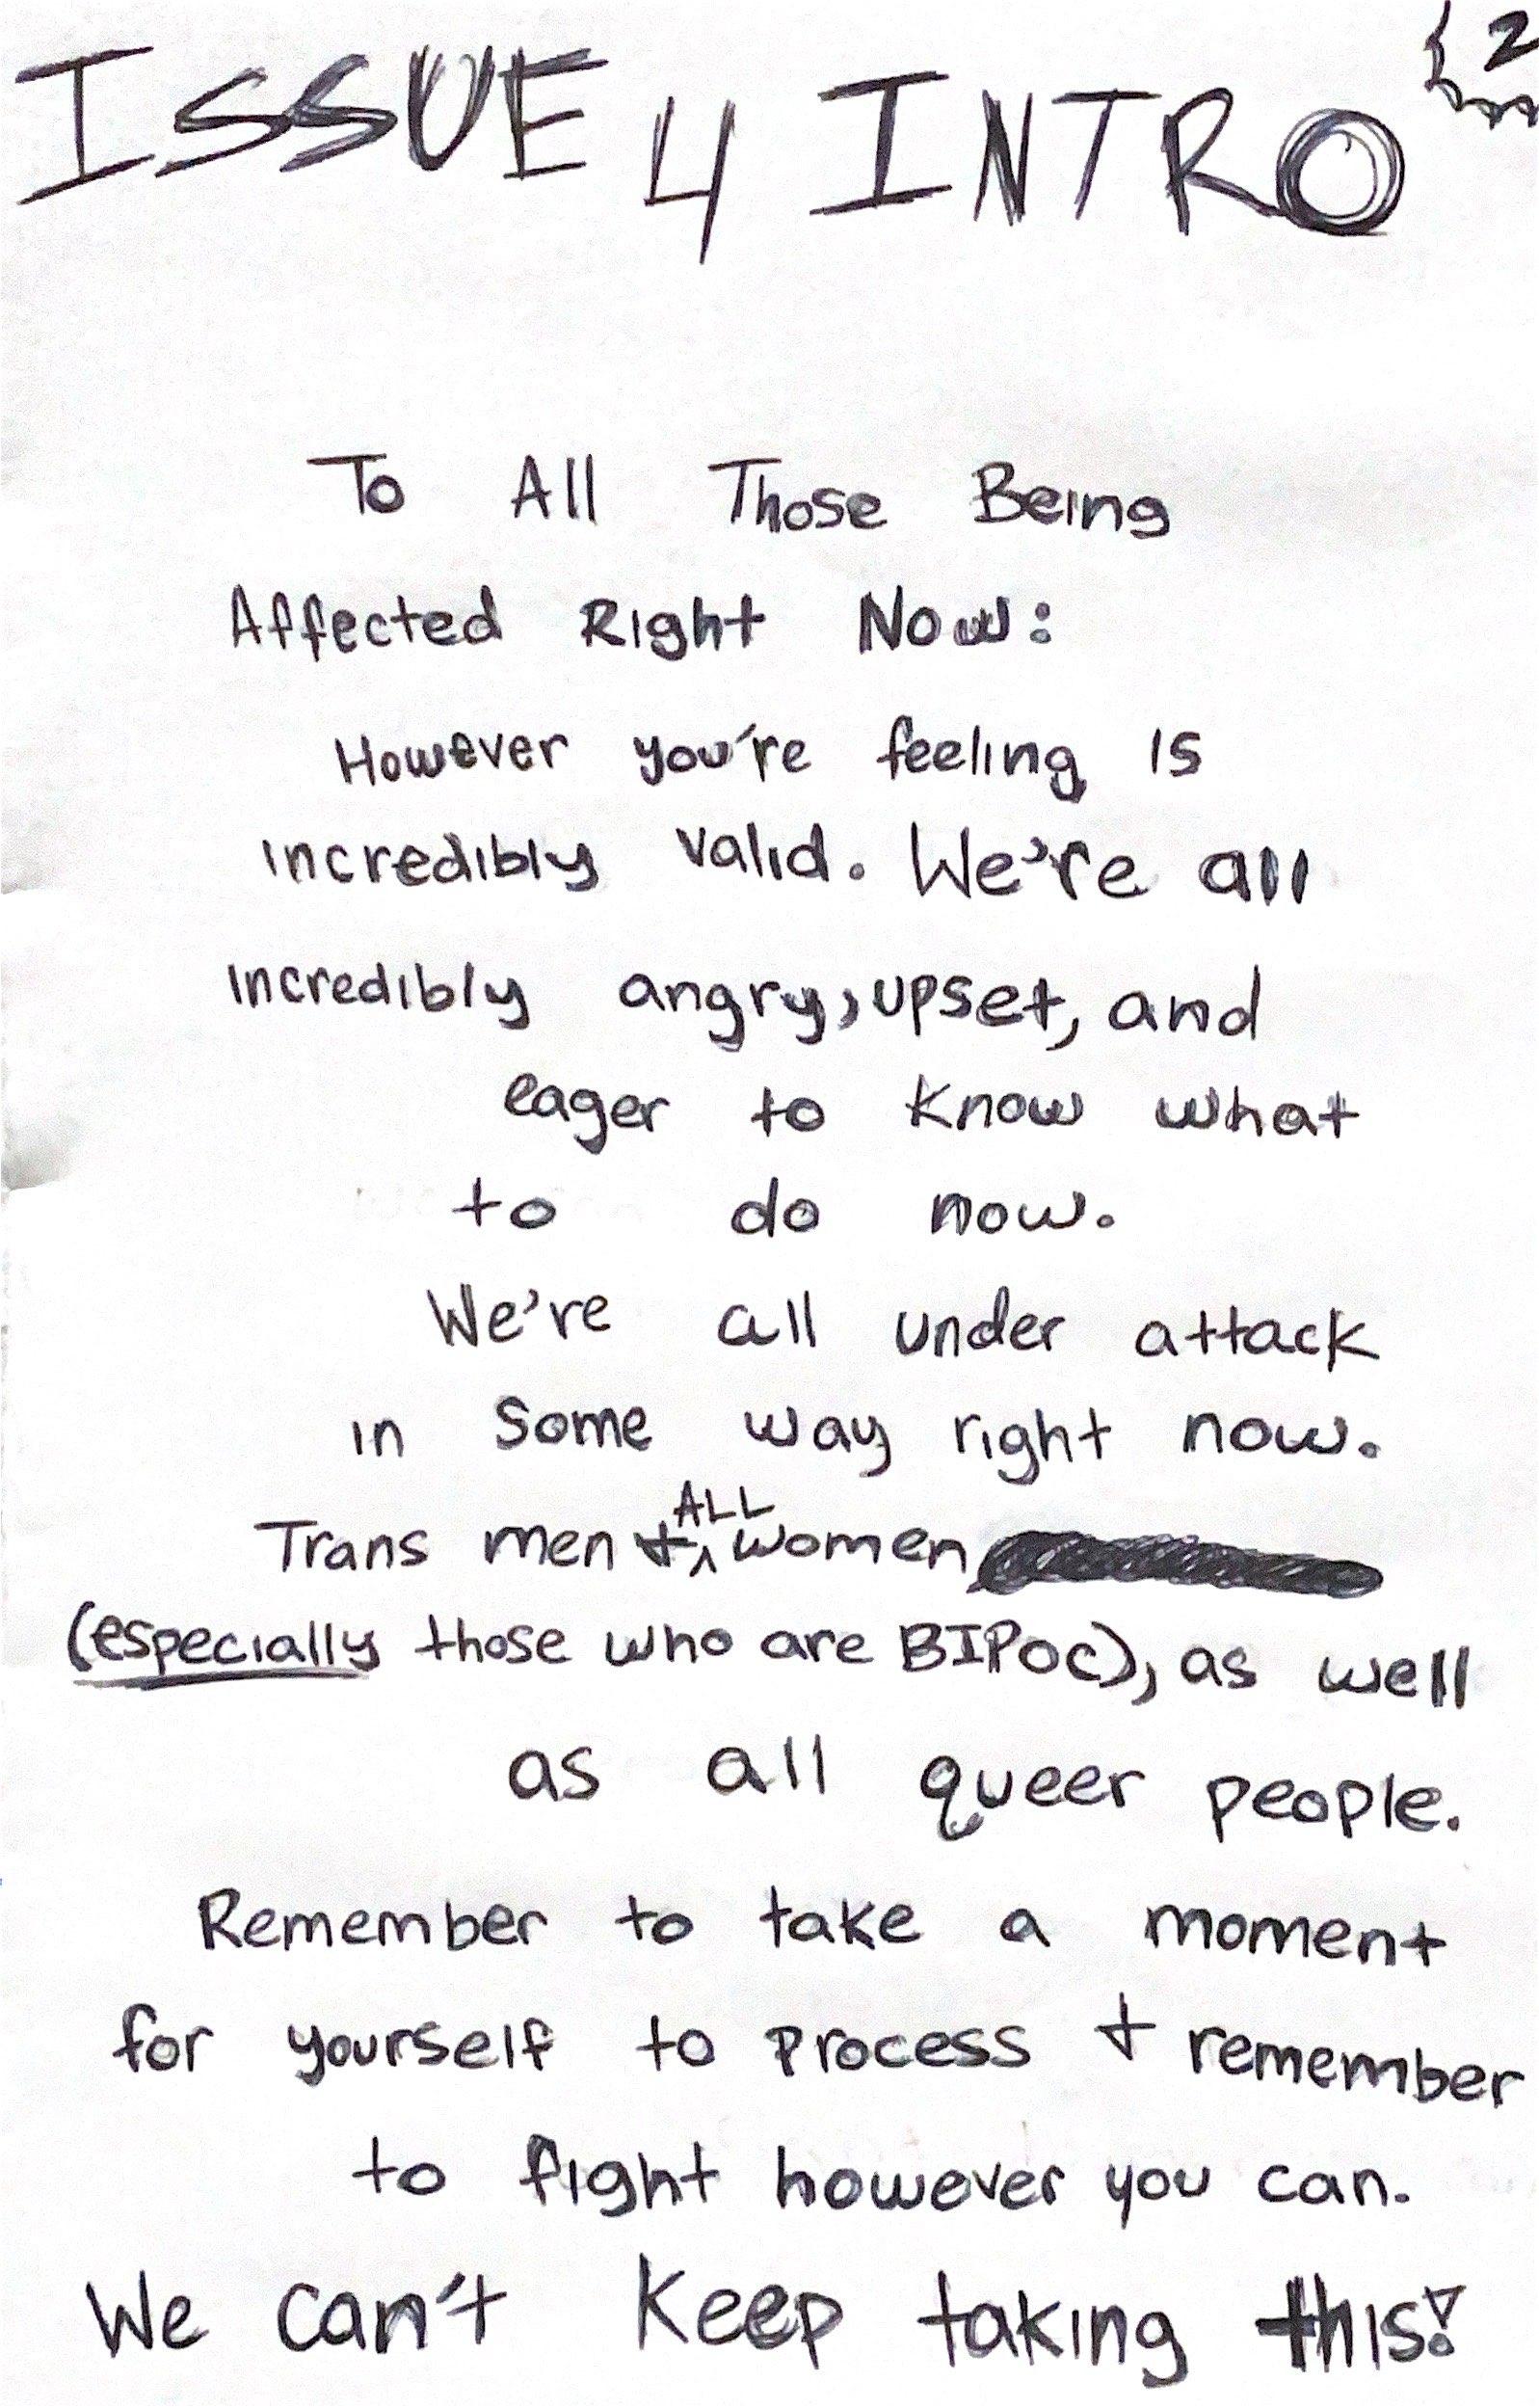 ISSUE 4 INTRO
2
To All Those Being
Affected Right Now:
However you're feeling is
incredibly valid. We're all
incredibly angry, upset, and
eager to know what
to do now.
We're all under attack
in some way right now.
Trans men + ALL women
(especially those who are BIPOC), as well
as all queer people.
Remember to take a moment
for yourself to process + remember
to fight however you can.
We can't keep taking this!